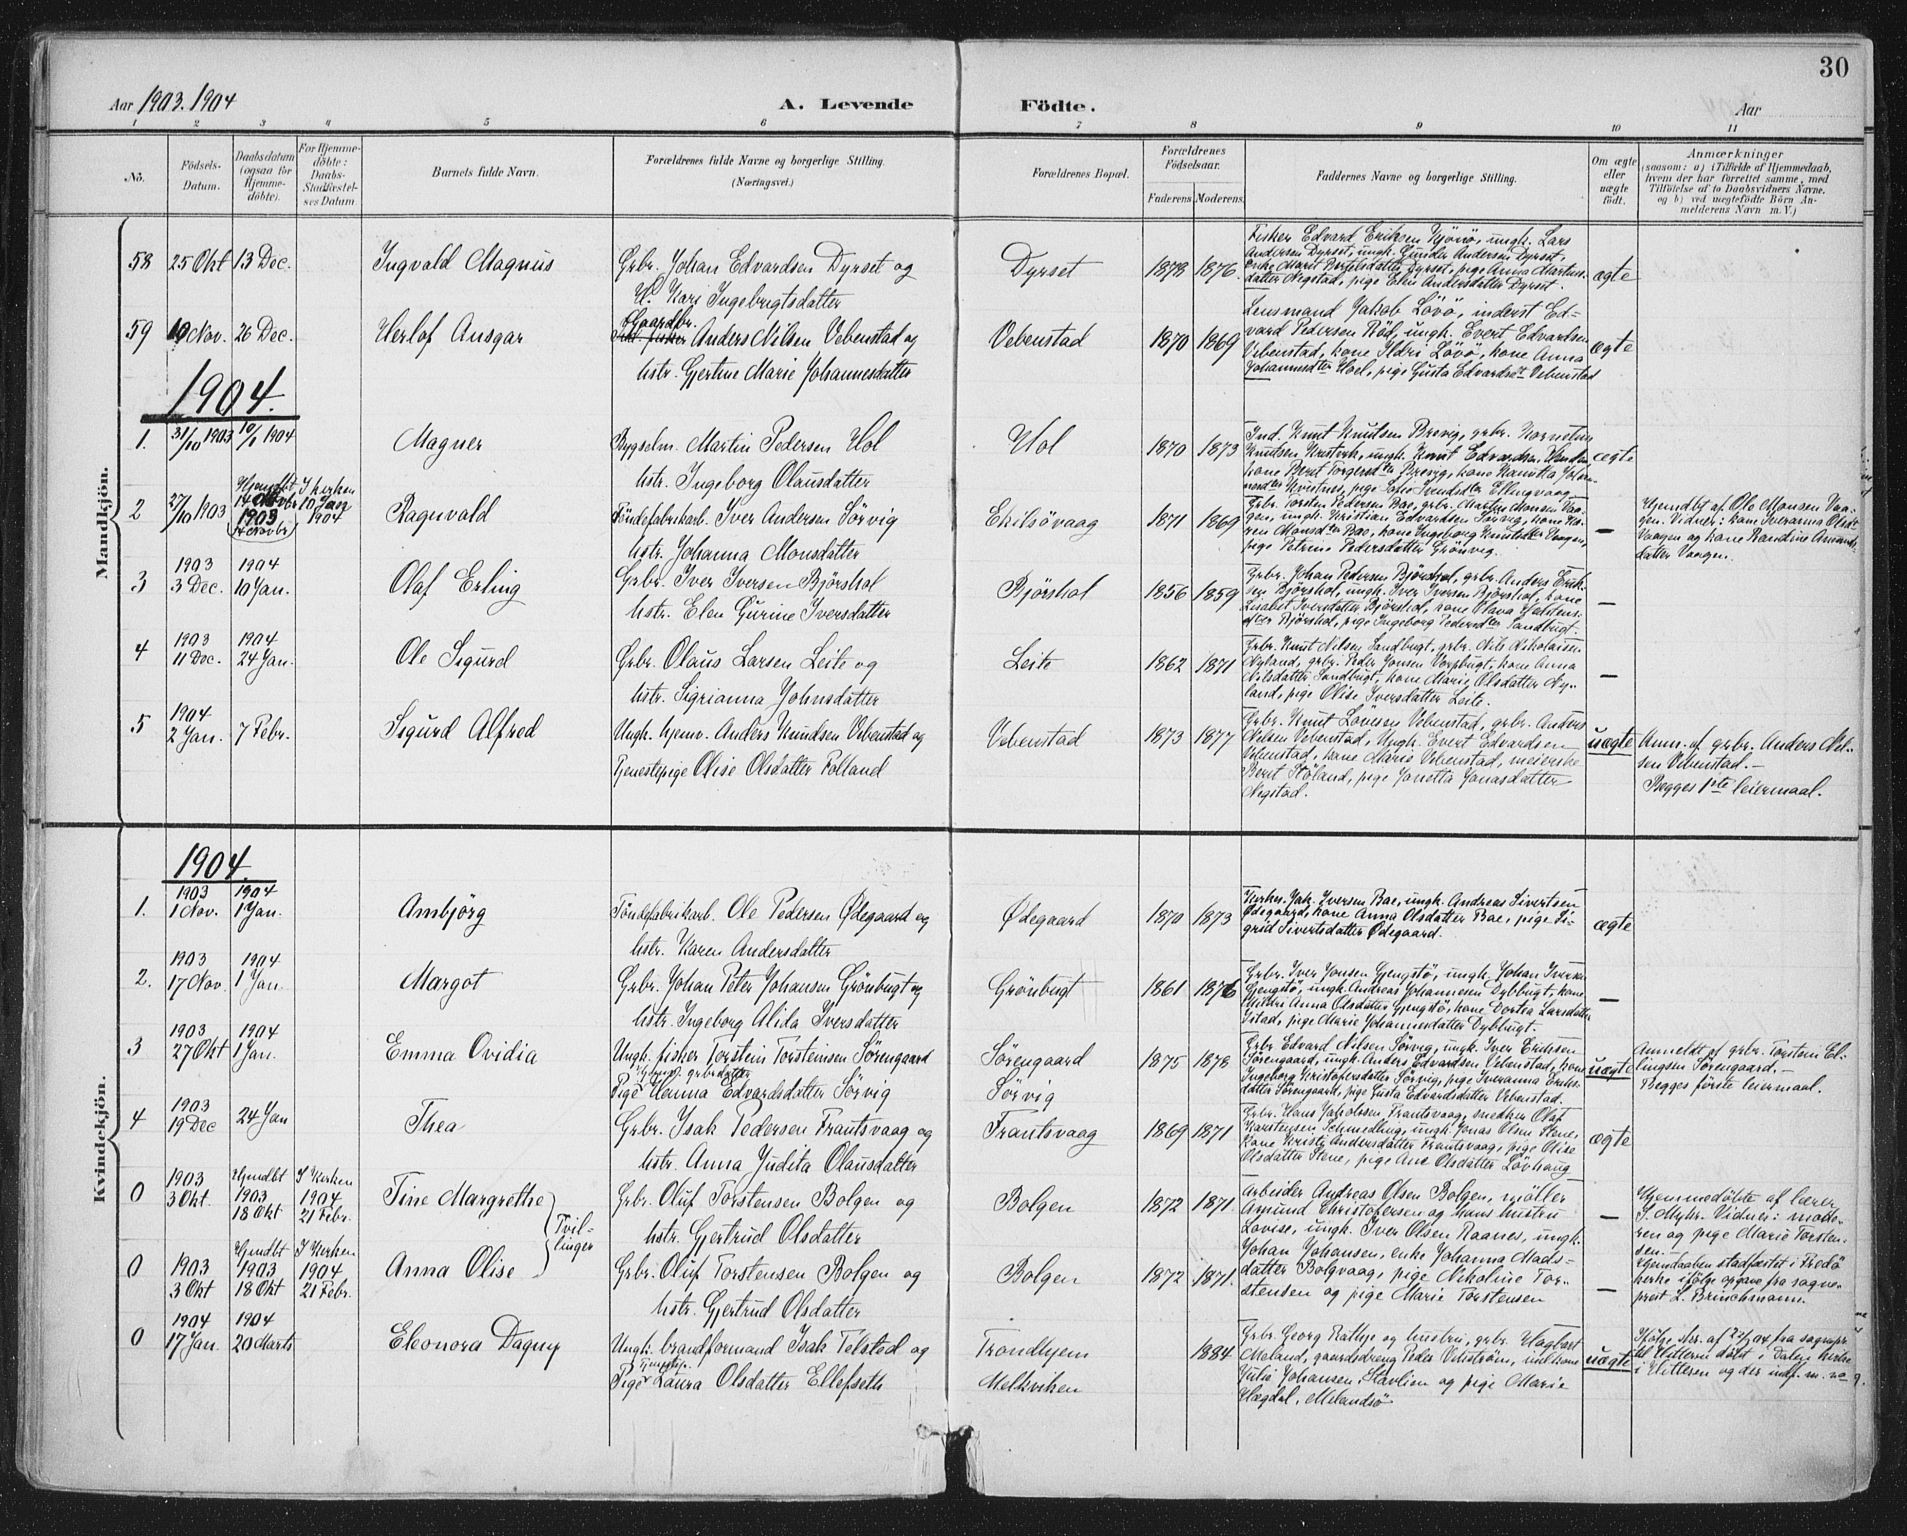 30
Aar 1903. 1904
A. Levende Födte.
Aar
1 2 3 4 5 6 7 8 9 10 11
No.
Födsels-
Datum.
Daabsdatum
(ogsaa for
Hjemme-
döbte).
For Hjemme-
döbte:
Daabs-
Stadfæstel-
ses Datum
Barnets fulde Navn.
Forældrenes fulde Navne og borgerlige Stilling.
(Næringsvei.)
Forældrenes Bopæl.
Forældrenes
Födselsaar.
Faderens. Moderens.
Faddernes Navne og borgerlige Stilling.
Om ægte
eller
uægte
født.
Anmærkninger
(saasom: a) i Tilfælde af Hjemmedaab,
hvem der har forrettet samme, med
Tilföielse af to Daabsvidners Navne.
og b) ved uægtefödte Börn An-
melderens Navn m. V.)
Mandkjön.
58 25 Okt 13 Dec. Ingvald Magnus
Grbr. Johan Edvardsen Dyrset og
H. Kari Ingebrigtsdatter
Dyrset 1878 1876
Fisker Edvard Eriksen Kjönö, ungk. Lars
Andersen Dyrset, ungk. Gunder Andersen Dyrset,
enke Marit Bertelsdatter Dyrset, pige Anna Martins-
datter Negstad, pige Elen Andersdatter Dyrset.
ægte
59 10 Nov. 26 Dec. Herlof Ansgar
Gaardbr.
Anders Nilsen Vebenstad og
hstr. Gjertine Marie Johannesdatter
Vebenstad 1870 1869
Lensmand Jakob Lövö, inderst Ed-
vard Pedersen Röd, ungk. Evert Edvardsen
Vebenstad, kone Ildri Lövö, kone Anna
Johannesdter Hoel, pige Gusta Edvardsdt Vebenstad
ægte
1904.
1. 31/10 1903 10/1 1904 Magner
Bygselm. Martin Pedersen Hol
hstr. Ingeborg Olausdatter
Hol 1870 1873
Ind. Knut Knutsen Brevig, grbr. Kornelius
Knutsen, ungk. Knut Edvardsen
kone Berit Torgersdter Brevig, kone
pige Sofie
ægte
2 27/10 1903 Hjemdbt
14 Novbr
1903
(14 Novbr)
I kirken
10 Jan
1904
Ragnvald
Töndefabrikarb. Iver Andersen Sörvig
hstr. Johanna Monsdatter
Ekilsövaag 1871 1869
Grbr. Torsten Pedersen Bae, grbr. Martin Monsen Vaa-
gen, ungk. Kristian Edvardsen Sörvig, kone Ka-
ren Monsdter Bae, kone Ingeborg Knutsdatter Vaagen,
pige Petrine Pedersdatter Grönvig.
—
Hjemdbt af Ole Monsen Vaa-
gen. Vidner: kone Iveranna Olsdt
Vaagen og kone Randine Amunds-
datter Vaagen.
3 1903
3 Dec. 1904
10 Jan. Olaf Erling
Grbr. Iver Iversen Bjørshol
hstr. Elen Gurine Iversdatter
Bjørshol 1856 1859
Grbr. Johan Pedersen Bjørshol, grbr. Anders Erik-
sen Bjørshol, ungk. Iver Iversen Bjørshol, kone
Lisabet Iversdatter Bjørshol, kone Olava Halstens-
dter Bjørshol, pige Ingeborg Pedersdter Sandbugt.
—
4 1903
11 Dec. 1904
24 Jan. Ole Sigurd
Grbr. Olaus Larsen Leite og
hstr. Sigrianna Johnsdatter
Leite 1862 1871
Grbr. Knut Nilsen Sandbugt, grbr. Nils Nikolaisen
Nyland, grbr. Peder Jonsen Vorpbugt, kone Anna
Nilsdatter Sandbugt, kone Marie Olsdatter Ny-
land, pige Olise Iversdatter Leite.
—
5 1904
2 Jan. 7 Febr. Sigurd Alfred
Ungk. hjemv. Anders Knudsen Vebenstad og
Tjenestepige Olise Olsdatter Folland
Vebenstad 1873 1877
Grbr. Knut Vebenstad, grbr. Anders
Nilsen Vebenstad, Ungk. Evert Edvardsen
Vebenstad, kone Marie Vebenstad, meierske
Berit Stöland, pige Jonetta Jonasdatter
Negstad.
uægte
Anm. af grbr. Anders Nil-
sen Vebenstad.—
Begges 1ste leiermaal.
Kvindekjön.
1904.
1. 1903
1 Nov. 1904
1 Jan. Ambjörg
Töndefabrikarb. Ole Pedersen Ødegaard og
hstr. Karen Andersdatter
Ødegaard 1870 1873
Kirkes. Jak. Iversen Bae, ungk. Andreas Sivertsen
Ødegaard, kone Anna Olsdatter Bae, pige Si-
grid Sivertsdatter Ødegaard.
ægte
2. 1903
17 Nov. 1904
1 Jan. Margot
Grbr. Johan Peter Johansen Grönbugt og
hstr. Ingeborg Alida Iversdatter
Grönbugt 1861 1876
Grbr. Iver Jonsen Gjengstö, ungk. Johan Iversen
Gjengstö, ungk. Andreas Johannesen Dybbugt, kone
Mildri Anna Olsdatter Gjengstö, kone Dortea Larsdatter
Istad, pige Marie Johannesdatter Dybbugt.
—
3 1903
27 Okt 1904
1 Jan. Emma Ovidia
Ungk. fisker Torstein Torsteinsen Sörengaard
Pige Hanna Edvardsdatter Sörvig
Sörengaard
Sörvig
1875 1878
Grbr. Edvard Nilsen Sörvig, ungk. Iver Eriksen
Sörengaard, ungk. Anders Edvardsen Vebenstad, kone
Ingeborg Kristofersdatter Sörvig, pige Iveranna Eriks-
datter Sörengaard, pige Gusta Edvardsdatter Vebenstad.
uægte
Anmeldt af grbr. Torstein El-
lingsen Sörengaard.—
Begges förste leiermaal.
4 1903
19 Dec 24 Jan Thea
Grbr. Isak Pedersen Frantsvaag og
hstr. Anna Judita Olausdatter
Frantsvaag 1869 1871
Grbr. Hans Jakobsen Frantsvaag, snedker Olaf
Karstensen Schmedling, ungk. Jonas Olsen Stene,
Kone Kristi Andersdatter Frantsvaag, pige Olise
Olsdatter Stene, pige Ane Olsdatter Lövhaug
ægte
0 1903
3 Okt. Hjemdbt
1903
18 Okt I Kirken
1904
21 Febr. Tine Margrethe
Tvil-
linger
Grbr. Oluf Torstensen Bolgen og
hstr. Gjertrud Olsdatter
Bolgen 1872 1871.
Arbeider Andreas Olsen Bolgen, møller
Asmund Christofersen og hans hustru
Lovise, ungk. Iver Olsen Raanes, ungk.
Johan Johansen, enke Johanna Mads-
datter Bolgvaag, pige Nikoline Tor-
stensen og pige Marie Torstensen
—
Hjemmedöbte af lærer
S. Myhr. Vidner: mode-
ren og pige Marie Torsten-
sen.—
Hjemdaaben stadfæstet i Fredö
kirke ifølge opgave fra sogne-
prest L. Brinchmann.
0 1903
3 Okt Hjemdbt
1903
18 Okt I Kirken
1904
21 Febr. Anna Olise
Grbr. Oluf Torstensen Bolgen og
hstr. Gjertrud Olsdatter
Bolgen 1872 1871.
—
0 1904
17 Jan. 1904
20 Marts Eleonora Dagny
Ungk. brandformand Isak Telstad og
Tjenestep.
Pige Laura Olsdatter Ellefseth
Trondhjem
Melkviken
1884
Grbr. Georg Rathje og hustru, grbr. Hagbart
Meland, gaardsdreng Peder
Julie Johansen Stavlien og pige Marie
Hægdal, Melandsö
uægte
Ifølge skr. af fra sognepr
til Hitteren döbt i Dalen kirke
i Hitteren og der indf. m. no 9.